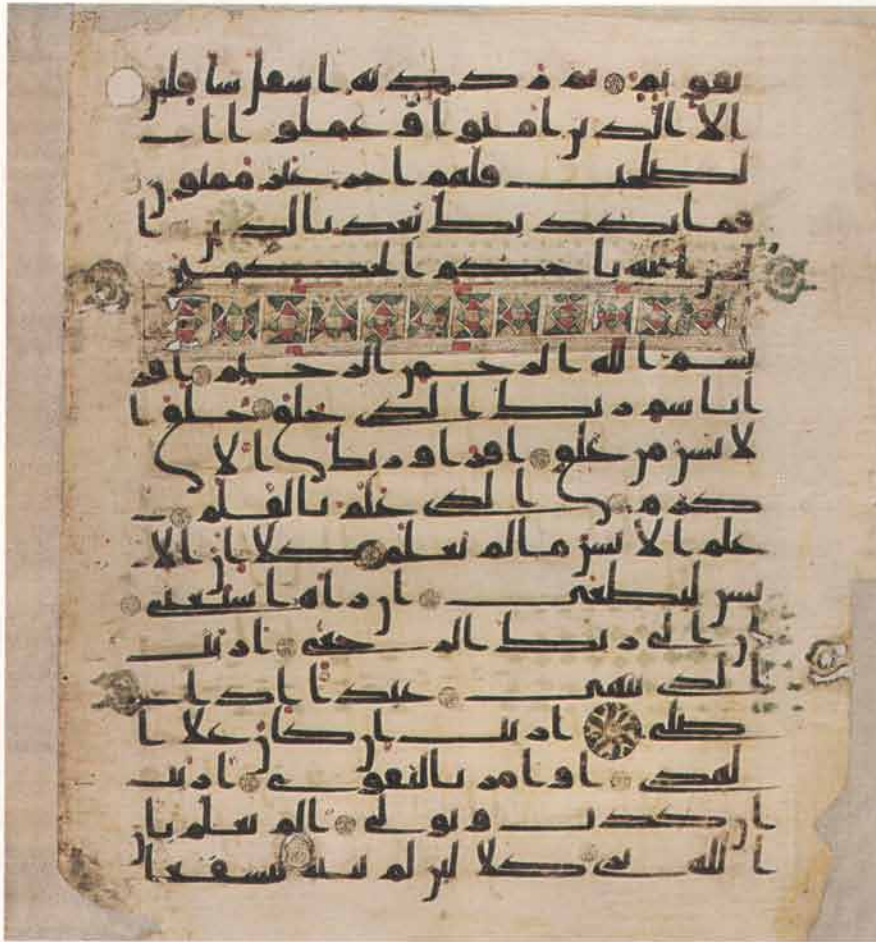 تقويم ثم رددنه اسفل سافلين
الا الذين امنوا و عملوا ا
لصلحت فلهم اجر غير ممنون
فما يكذبك بعد بالدين ا
ليس الله باحكم الحكمين
بسم الله الرحمن الرحيم اقر
ا باسم ربك الذي خلق خلق ا
لانسن من علق اقرا وربك الا
كرم الذي علم بالقلم
علم الانسن ما لم يعلم كلا ان الا
نسن ليطغى ان راه استغنى
ان الى ربك الرجعى اريت
الذي ينهى عبدا اذا
صلى اريت ان كان على ا
لهدى او امر بالتقوى اريت
ان كذب وتولى الم يعلم بان
الله يرى كلا لئن لم ينته لنسفعا